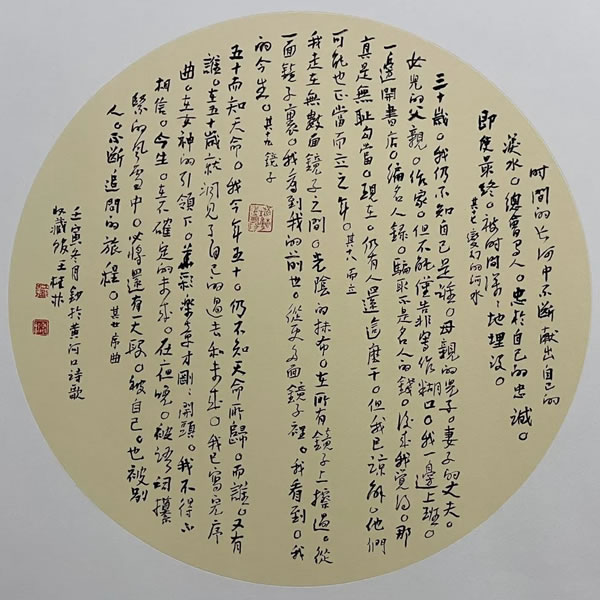 时間的长河中不断献出自己的
水。總會有人。忠於自己的忠誠。
即使最終。被時間深深地埋没。
變幻的河水
三十歲。我仍不知自己是誰。母親的兒子。妻子的丈夫。
女兒的父親。作家。但不能僅靠寫作糊口。我一邊上班。
一邊開書店。編名人録。騙取不是名人的錢。後來我覺得。那
真是無耻勾當。現在。仍有人還這麼干。但我已諒解。他們
可能也正當而立之年。其十八 而立
我走在無數面鏡子之間。光陰的抹布。在所有鏡子上擦過。從
一面鏡子裏。我看到我的前世。從更多面鏡子裡。我看到。我
的今生。其十九 鏡子
五十而知天命。我今年五十。仍不知天命所歸。而誰。又有
誰。在五十歲就洞見了自己的過去和未來。我已寫完序
曲。在女神的引領下。華彩樂章才剛剛開頭。我不得不
相信。今生。在不確定的未來。在夜晚。被語詞攥
緊的風雪中。必將還有一大段。被自己。也被别
人。不断追問的旅程。其廿 序曲
壬寅冬月鈔於黄河口詩歌
收藏館 王桂林